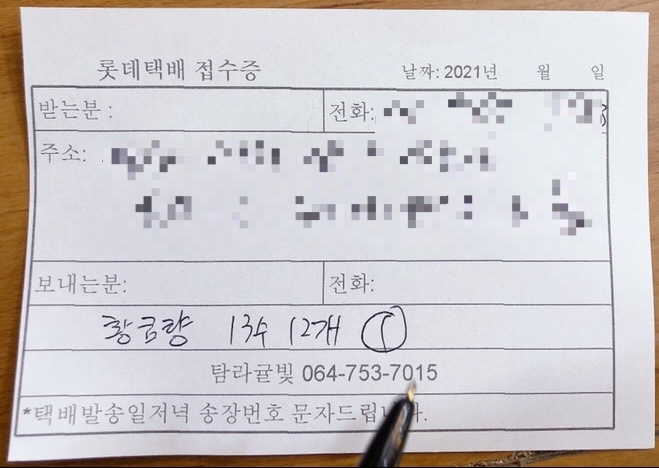 롯데택배 접수증 날짜: 2021년 월 일
받는분 : 전화:
주소:
보내는분: 전화:
황금향 13수 12개 ①
탐라귤빛 064-753-7015
*택배발송일저녁 송장번호 문자드립니다.